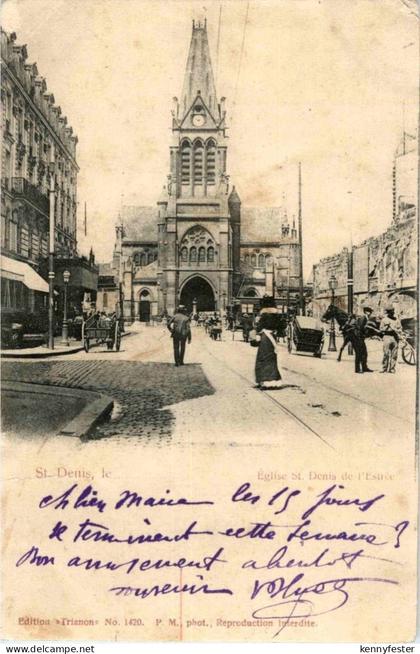 St. Denis, le
Eglise St. Denis de l'Estrée
Chien Marie les 15 jours
se terminent cette semaine ?
Bon amusement à bientôt
souvenir
Edition »Trianon« No. 1420. P. M., phot., Reproduction Interdite.
kennyfester